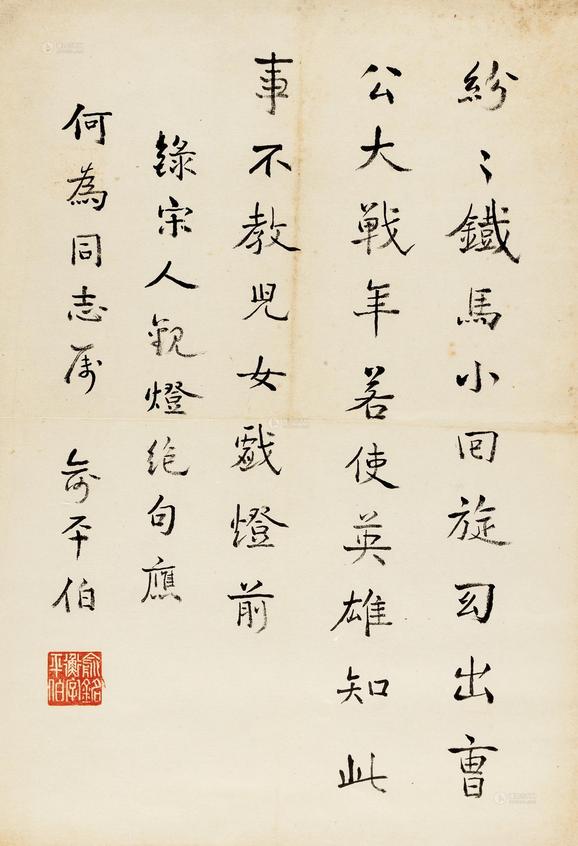 紛〻鐵馬小回旋幻出曹
公大戰年若使英雄知此
事不教兒女戲燈前
錄宋人觀燈絕句應
何為同志属 俞平伯
俞銘衡字平伯